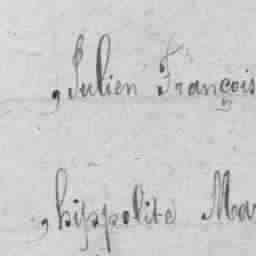 , Julien François
, hippolite Mar